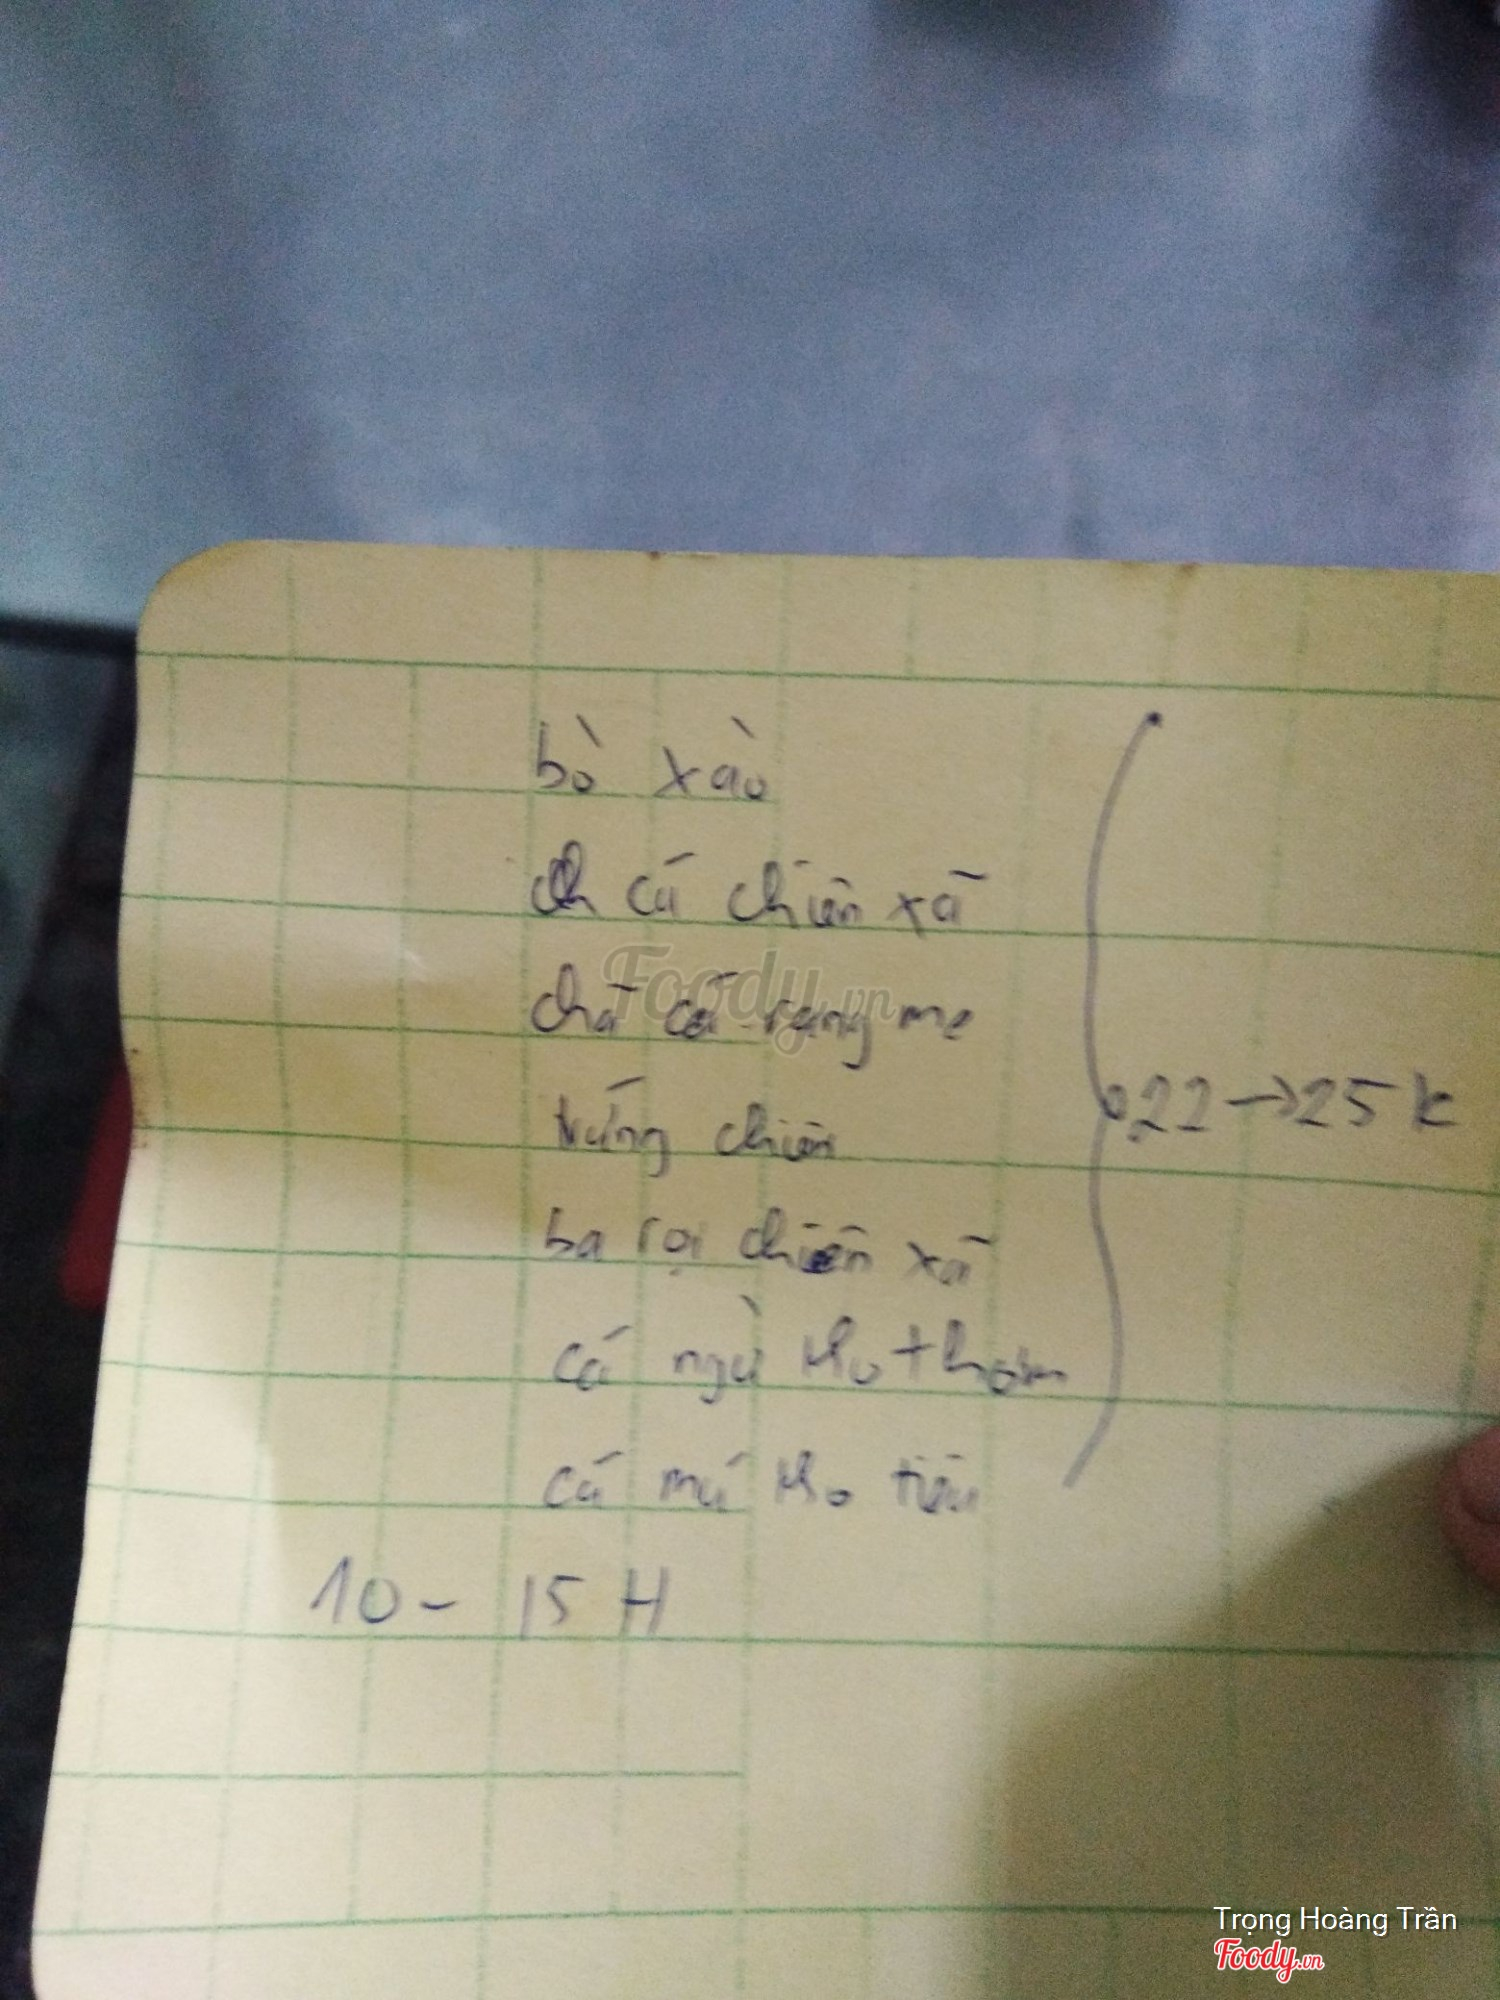 bò xào
cá chiên xã
chã cá rang me
trứng chiên
ba rọi chiên xã
cá ngừ kho thơm
cá mú kho tiêu
22 → 25 k
10 - 15 H
Foody.vn
Trọng Hoàng Trần
Foody.vn